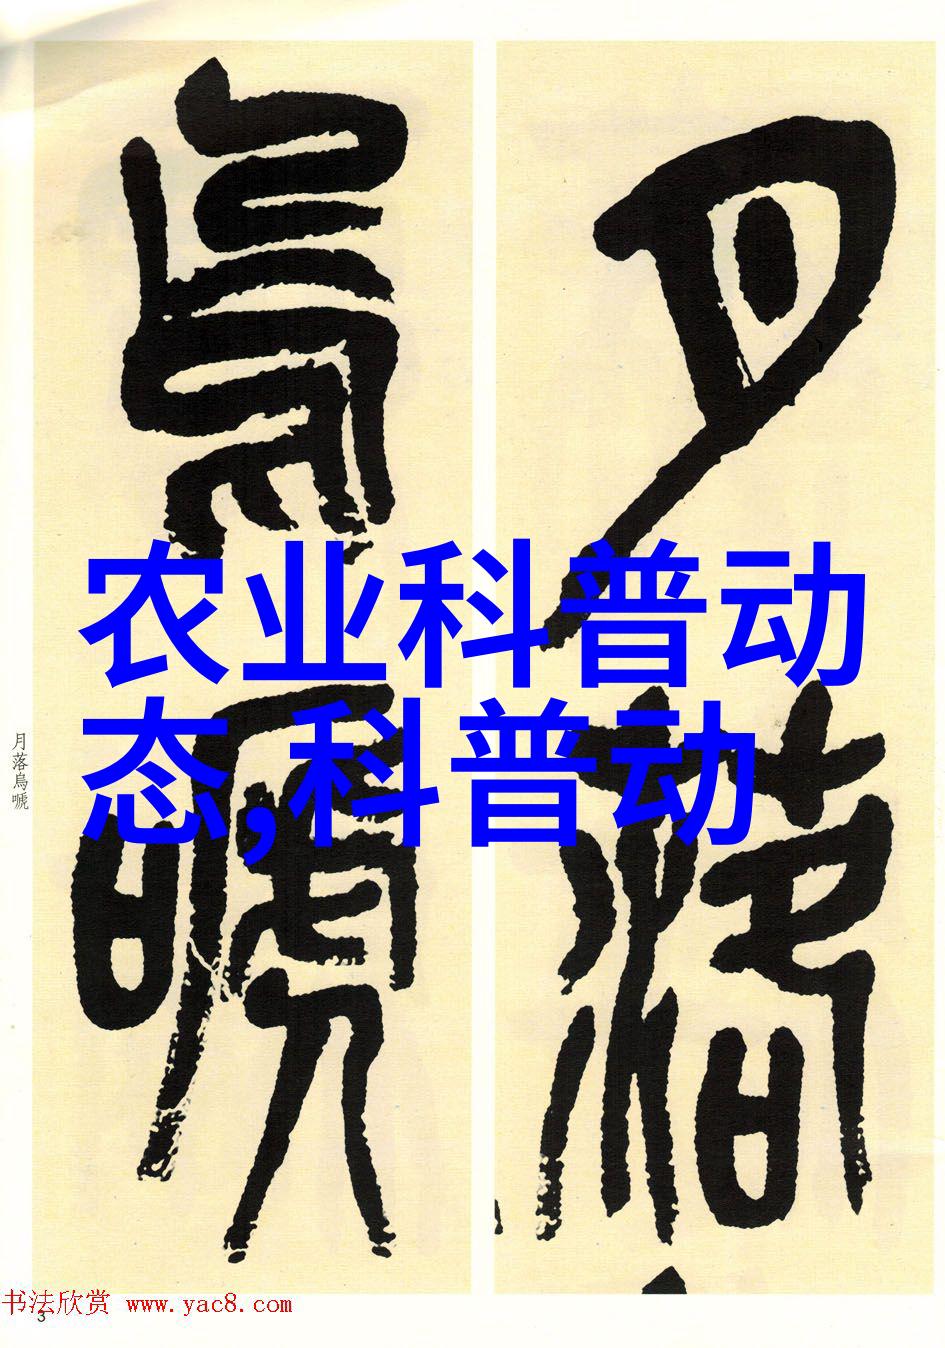 月落
烏嗁
月落烏嗁
农业科普动
态,科普动
书法欣赏 www.yac8.com
3